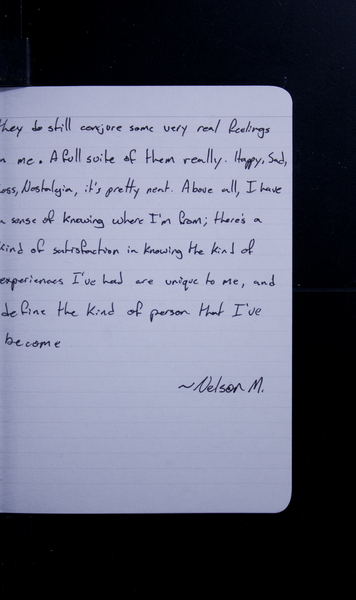 they do still conjure some very real feelings
in me. A full suite of them really. Happy, Sad,
Loss, Nostalgia, it's pretty neat. Above all, I have
a sense of knowing where I'm from; there's a
kind of satisfaction in knowing the kind of
experiences I've had are unique to me, and
define the kind of person that I've
become
~Nelson M.